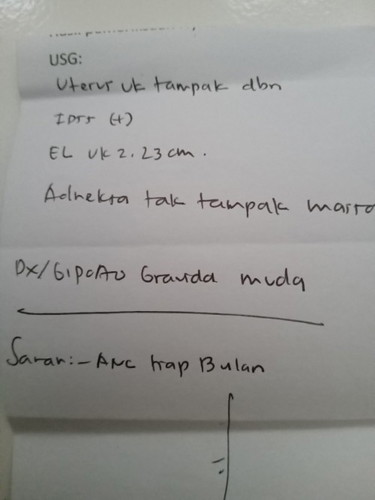 USG:
Uterus uk tampak dbn
EL uk 2.23 cm.
Adneksa tak tampak massa
Dx/ G1P0A0 Gravida muda
Saran:- ANC tiap Bulan